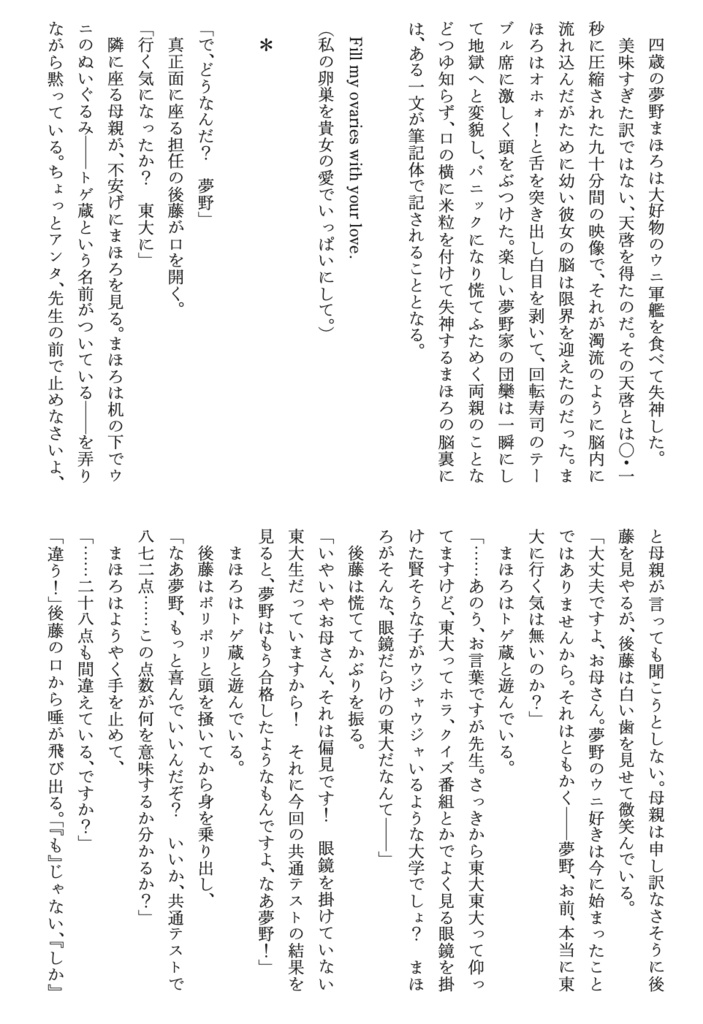 四歳の夢野まほろは大好物のウニ軍艦を食べて失神した。
　美味すぎた訳ではない、天啓を得たのだ。その天啓とは〇・一
秒に圧縮された九十分間の映像で、それが濁流のように脳内に
流れ込んだがために幼い彼女の脳は限界を迎えたのだった。ま
ほろはオホォ！と舌を突き出し白目を剥いて、回転寿司のテー
ブル席に激しく頭をぶつけた。楽しい夢野家の団欒は一瞬にし
て地獄へと変貌し、パニックになり慌てふためく両親のことな
どつゆ知らず、口の横に米粒を付けて失神するまほろの脳裏に
は、ある一文が筆記体で記されることとなる。
Fill my ovaries with your love.
（私の卵巣を貴女の愛でいっぱいにして。）
＊
「で、どうなんだ？　夢野」
　真正面に座る担任の後藤が口を開く。
「行く気になったか？　東大に」
　隣に座る母親が、不安げにまほろを見る。まほろは机の下でウ
ニのぬいぐるみ――トゲ蔵という名前がついている――を弄り
ながら黙っている。ちょっとアンタ、先生の前で止めなさいよ、
と母親が言っても聞こうとしない。母親は申し訳なさそうに後
藤を見やるが、後藤は白い歯を見せて微笑んでいる。
「大丈夫ですよ、お母さん。夢野のウニ好きは今に始まったこと
ではありませんから。それはともかく――夢野、お前、本当に東
大に行く気は無いのか？」
　まほろはトゲ蔵と遊んでいる。
「……あのう、お言葉ですが先生。さっきから東大東大って仰っ
てますけど、東大ってホラ、クイズ番組とかでよく見る眼鏡を掛
けた賢そうな子がウジャウジャいるような大学でしょ？　まほ
ろがそんな、眼鏡だらけの東大だなんて――」
　後藤は慌ててかぶりを振る。
「いやいやお母さん、それは偏見です！　眼鏡を掛けていない
東大生だっていますから！　それに今回の共通テストの結果を
見ると、夢野はもう合格したようなもんですよ、なあ夢野！」
　まほろはトゲ蔵と遊んでいる。
　後藤はポリポリと頭を掻いてから身を乗り出し、
「なあ夢野、もっと喜んでいいんだぞ？　いいか、共通テストで
八七二点……この点数が何を意味するか分かるか？」
　まほろはようやく手を止めて、
「……二十八点も間違えている、ですか？」
「違う！」後藤の口から唾が飛び出る。「『も』じゃない、『しか』